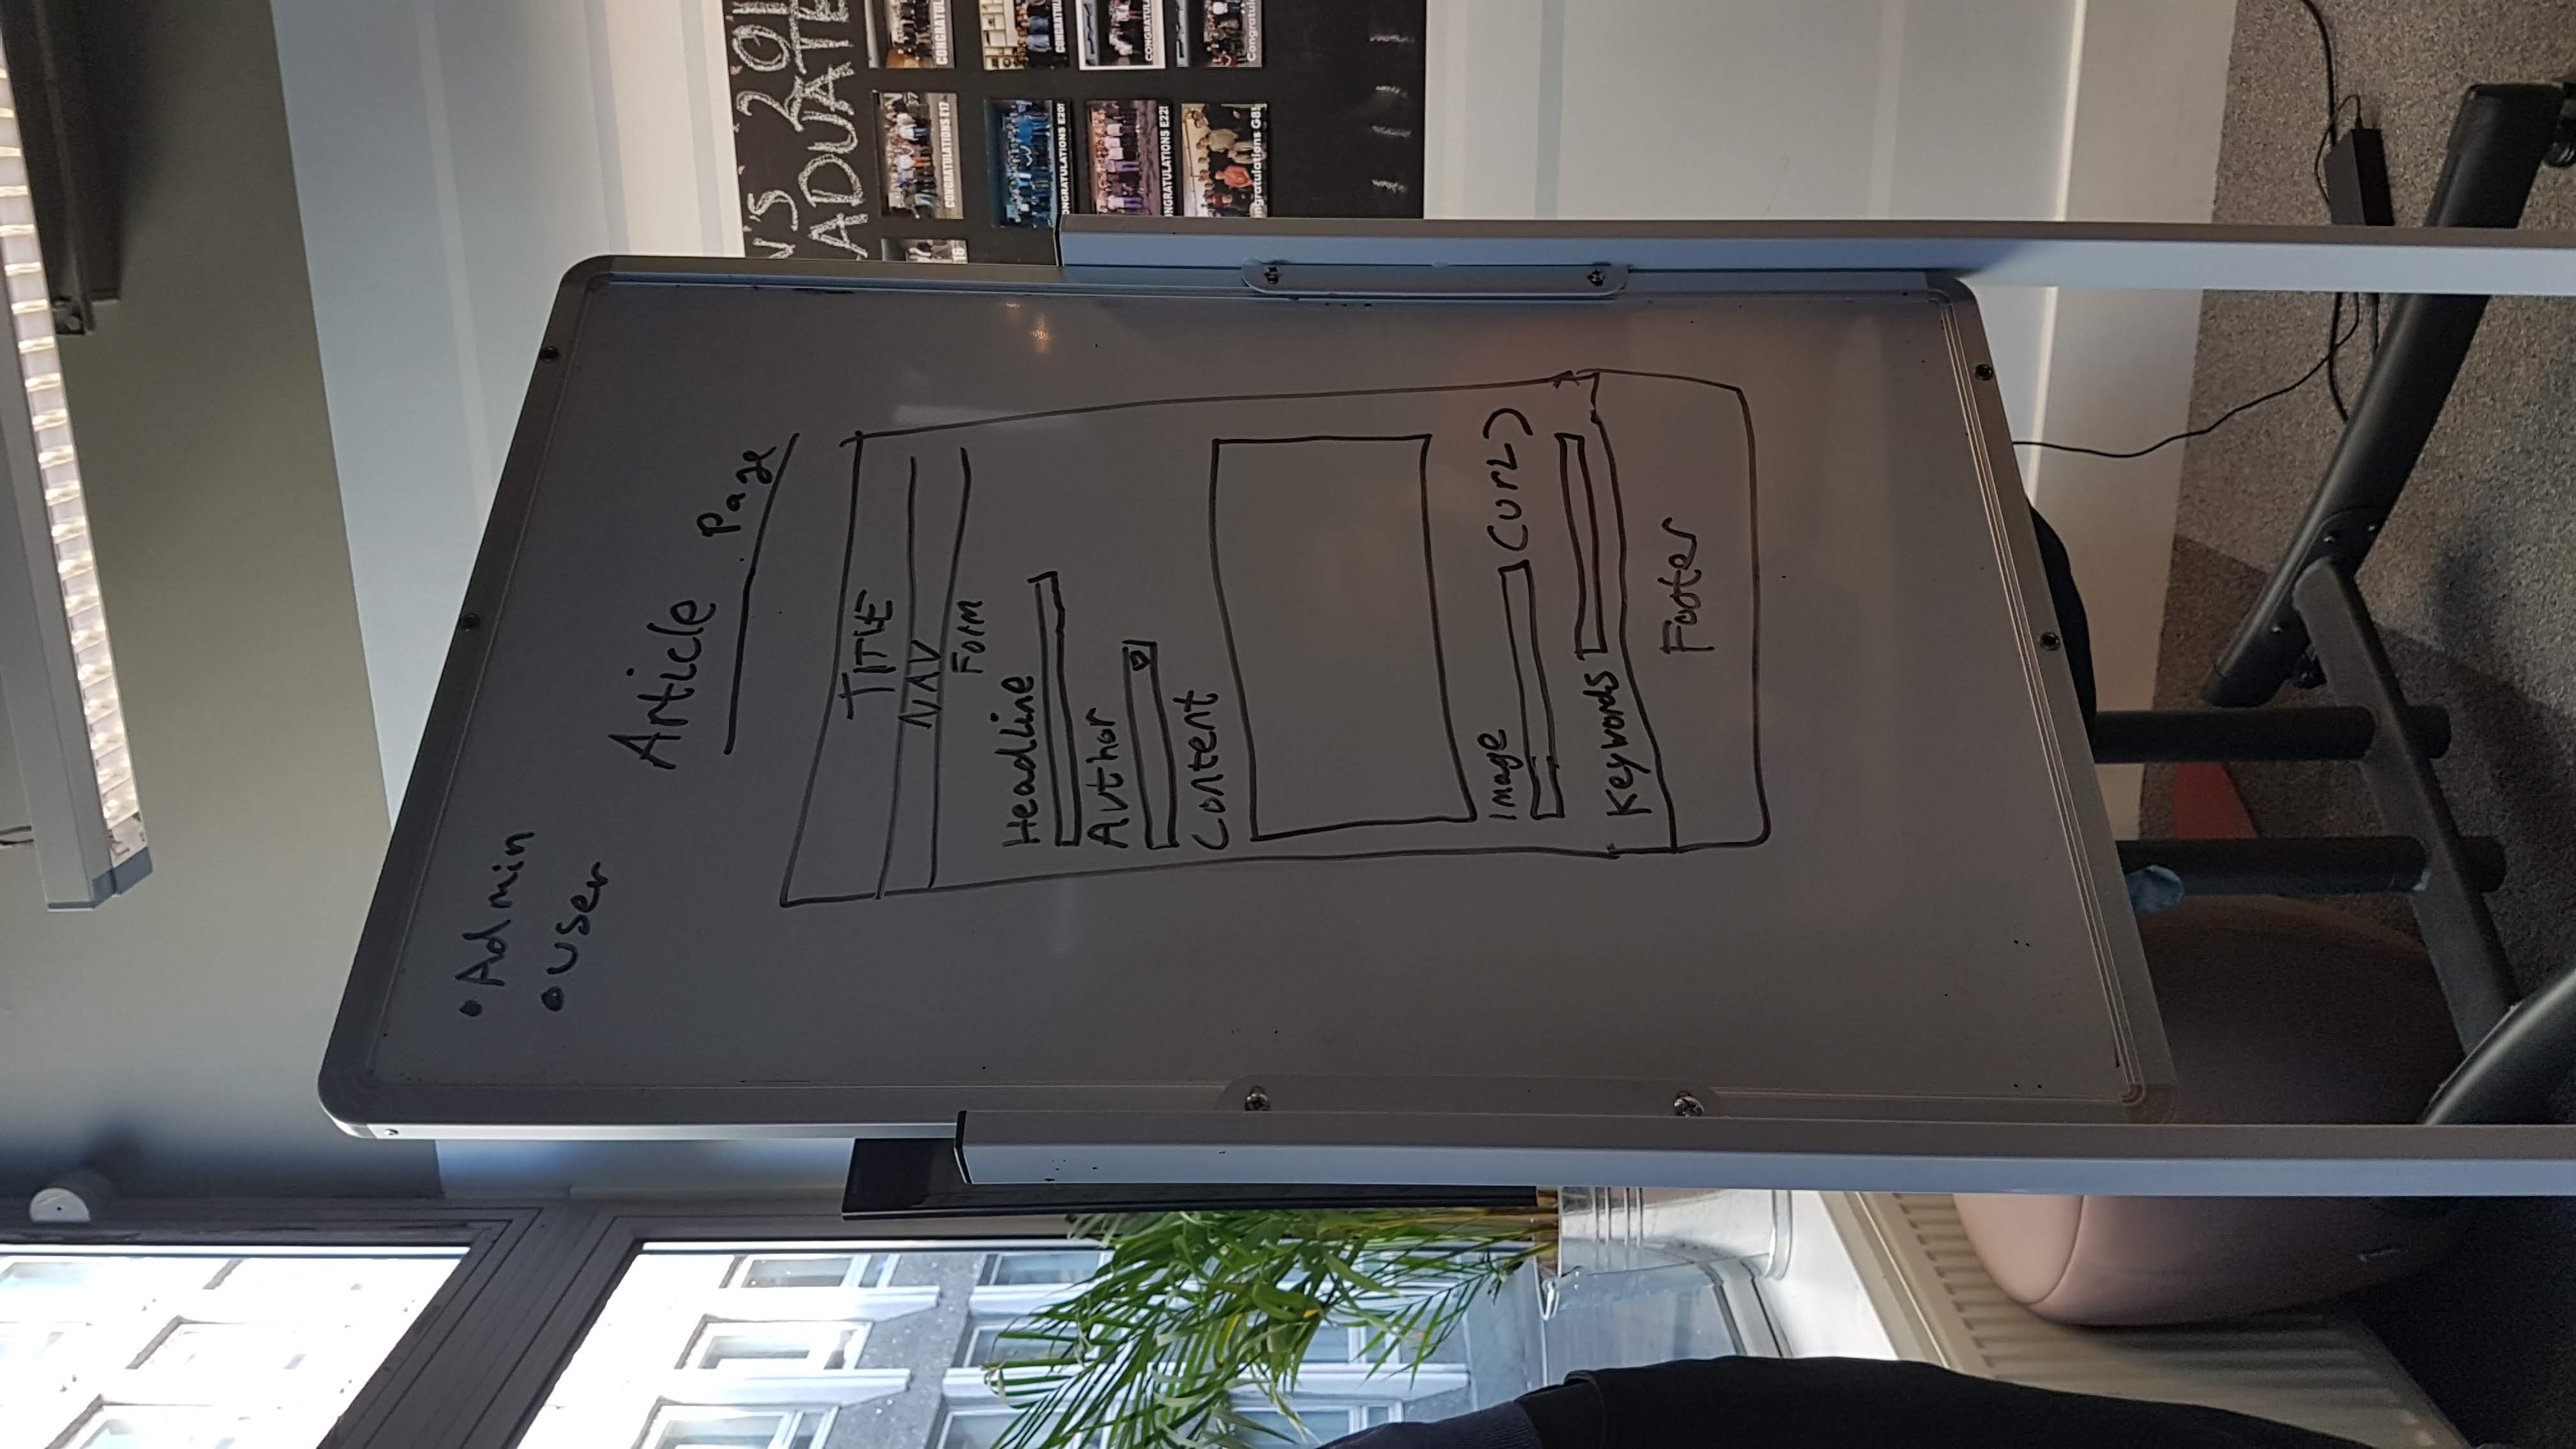 • Admin
• User
Article Page
TITLE
NAV
Form
Headline
Author
Content
Image
(URL)
Keywords
Footer
N'S 201
ADUATE
CONGRATULATIONS E17
CONGRATUL
16
ONGRATULATIONS E20!
CONGRATUL
ONGRATULATIONS E22!
CONGRATULA
ngratulations G8!
Congratul